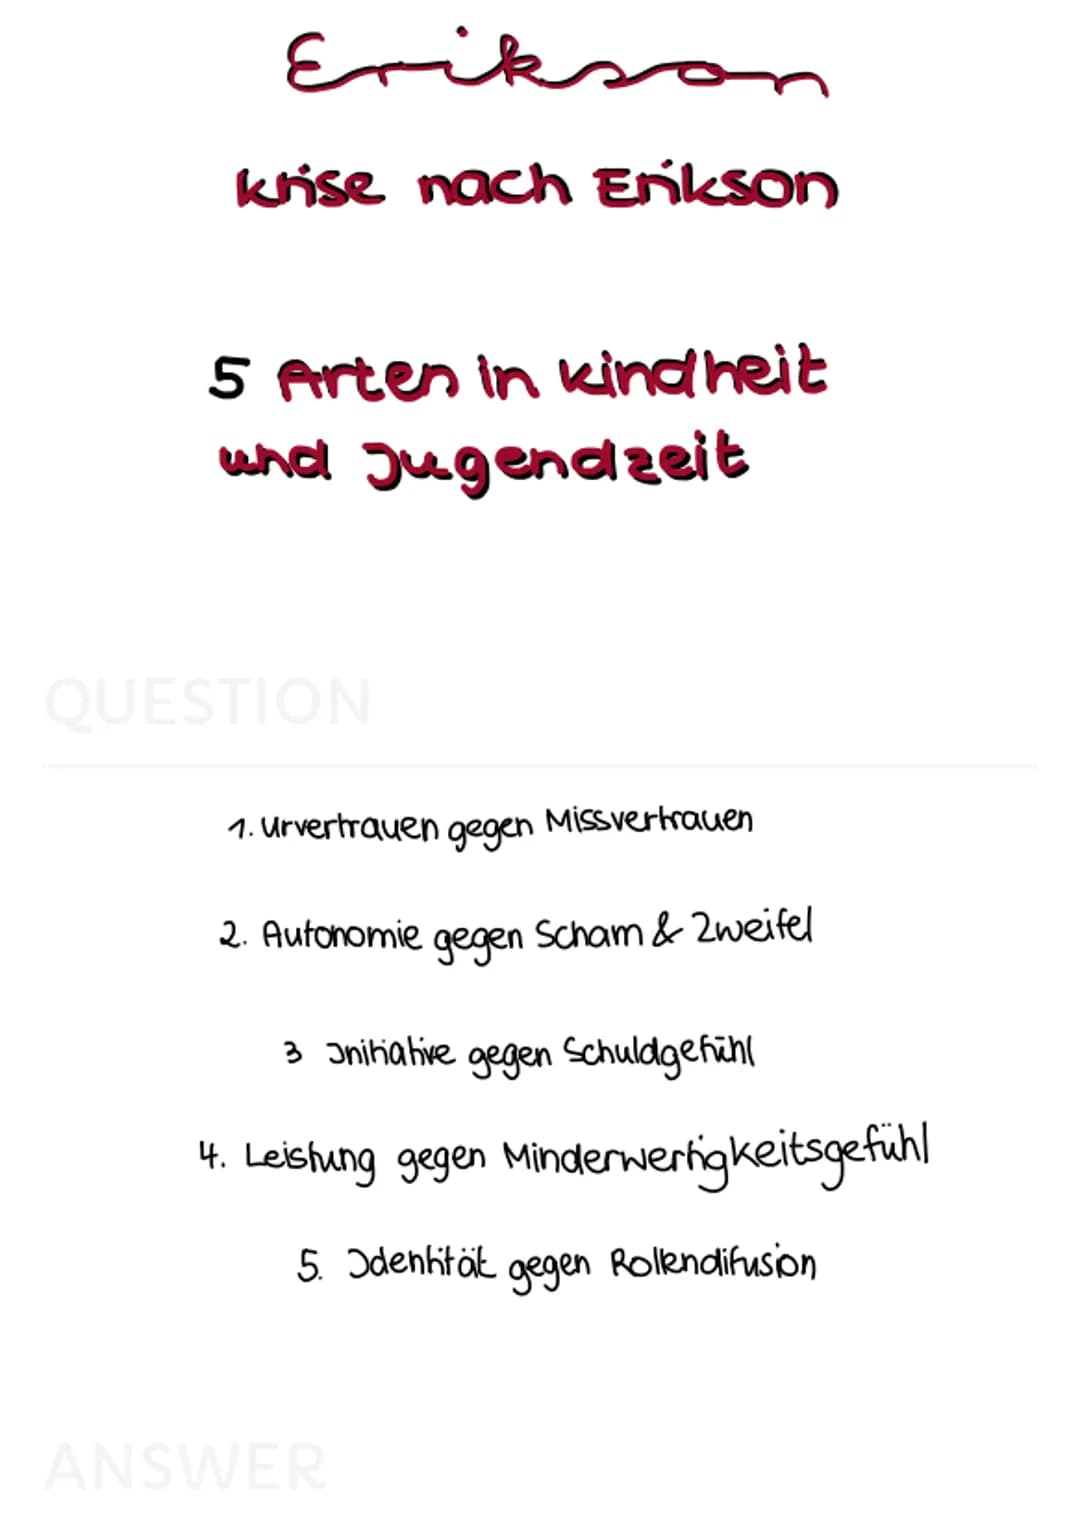 Erikson
Krise nach Erikson
5 Arten in Kindheit
und Jugendzeit
QUESTION
1. Urvertrauen gegen Missvertrauen
2. Autonomie gegen Scham & Zweifel
3 Initiative gegen Schuldgefühl
4. Leistung gegen Minderwertigkeitsgefühl
5. Identität gegen Rollendifusion
ANSWER